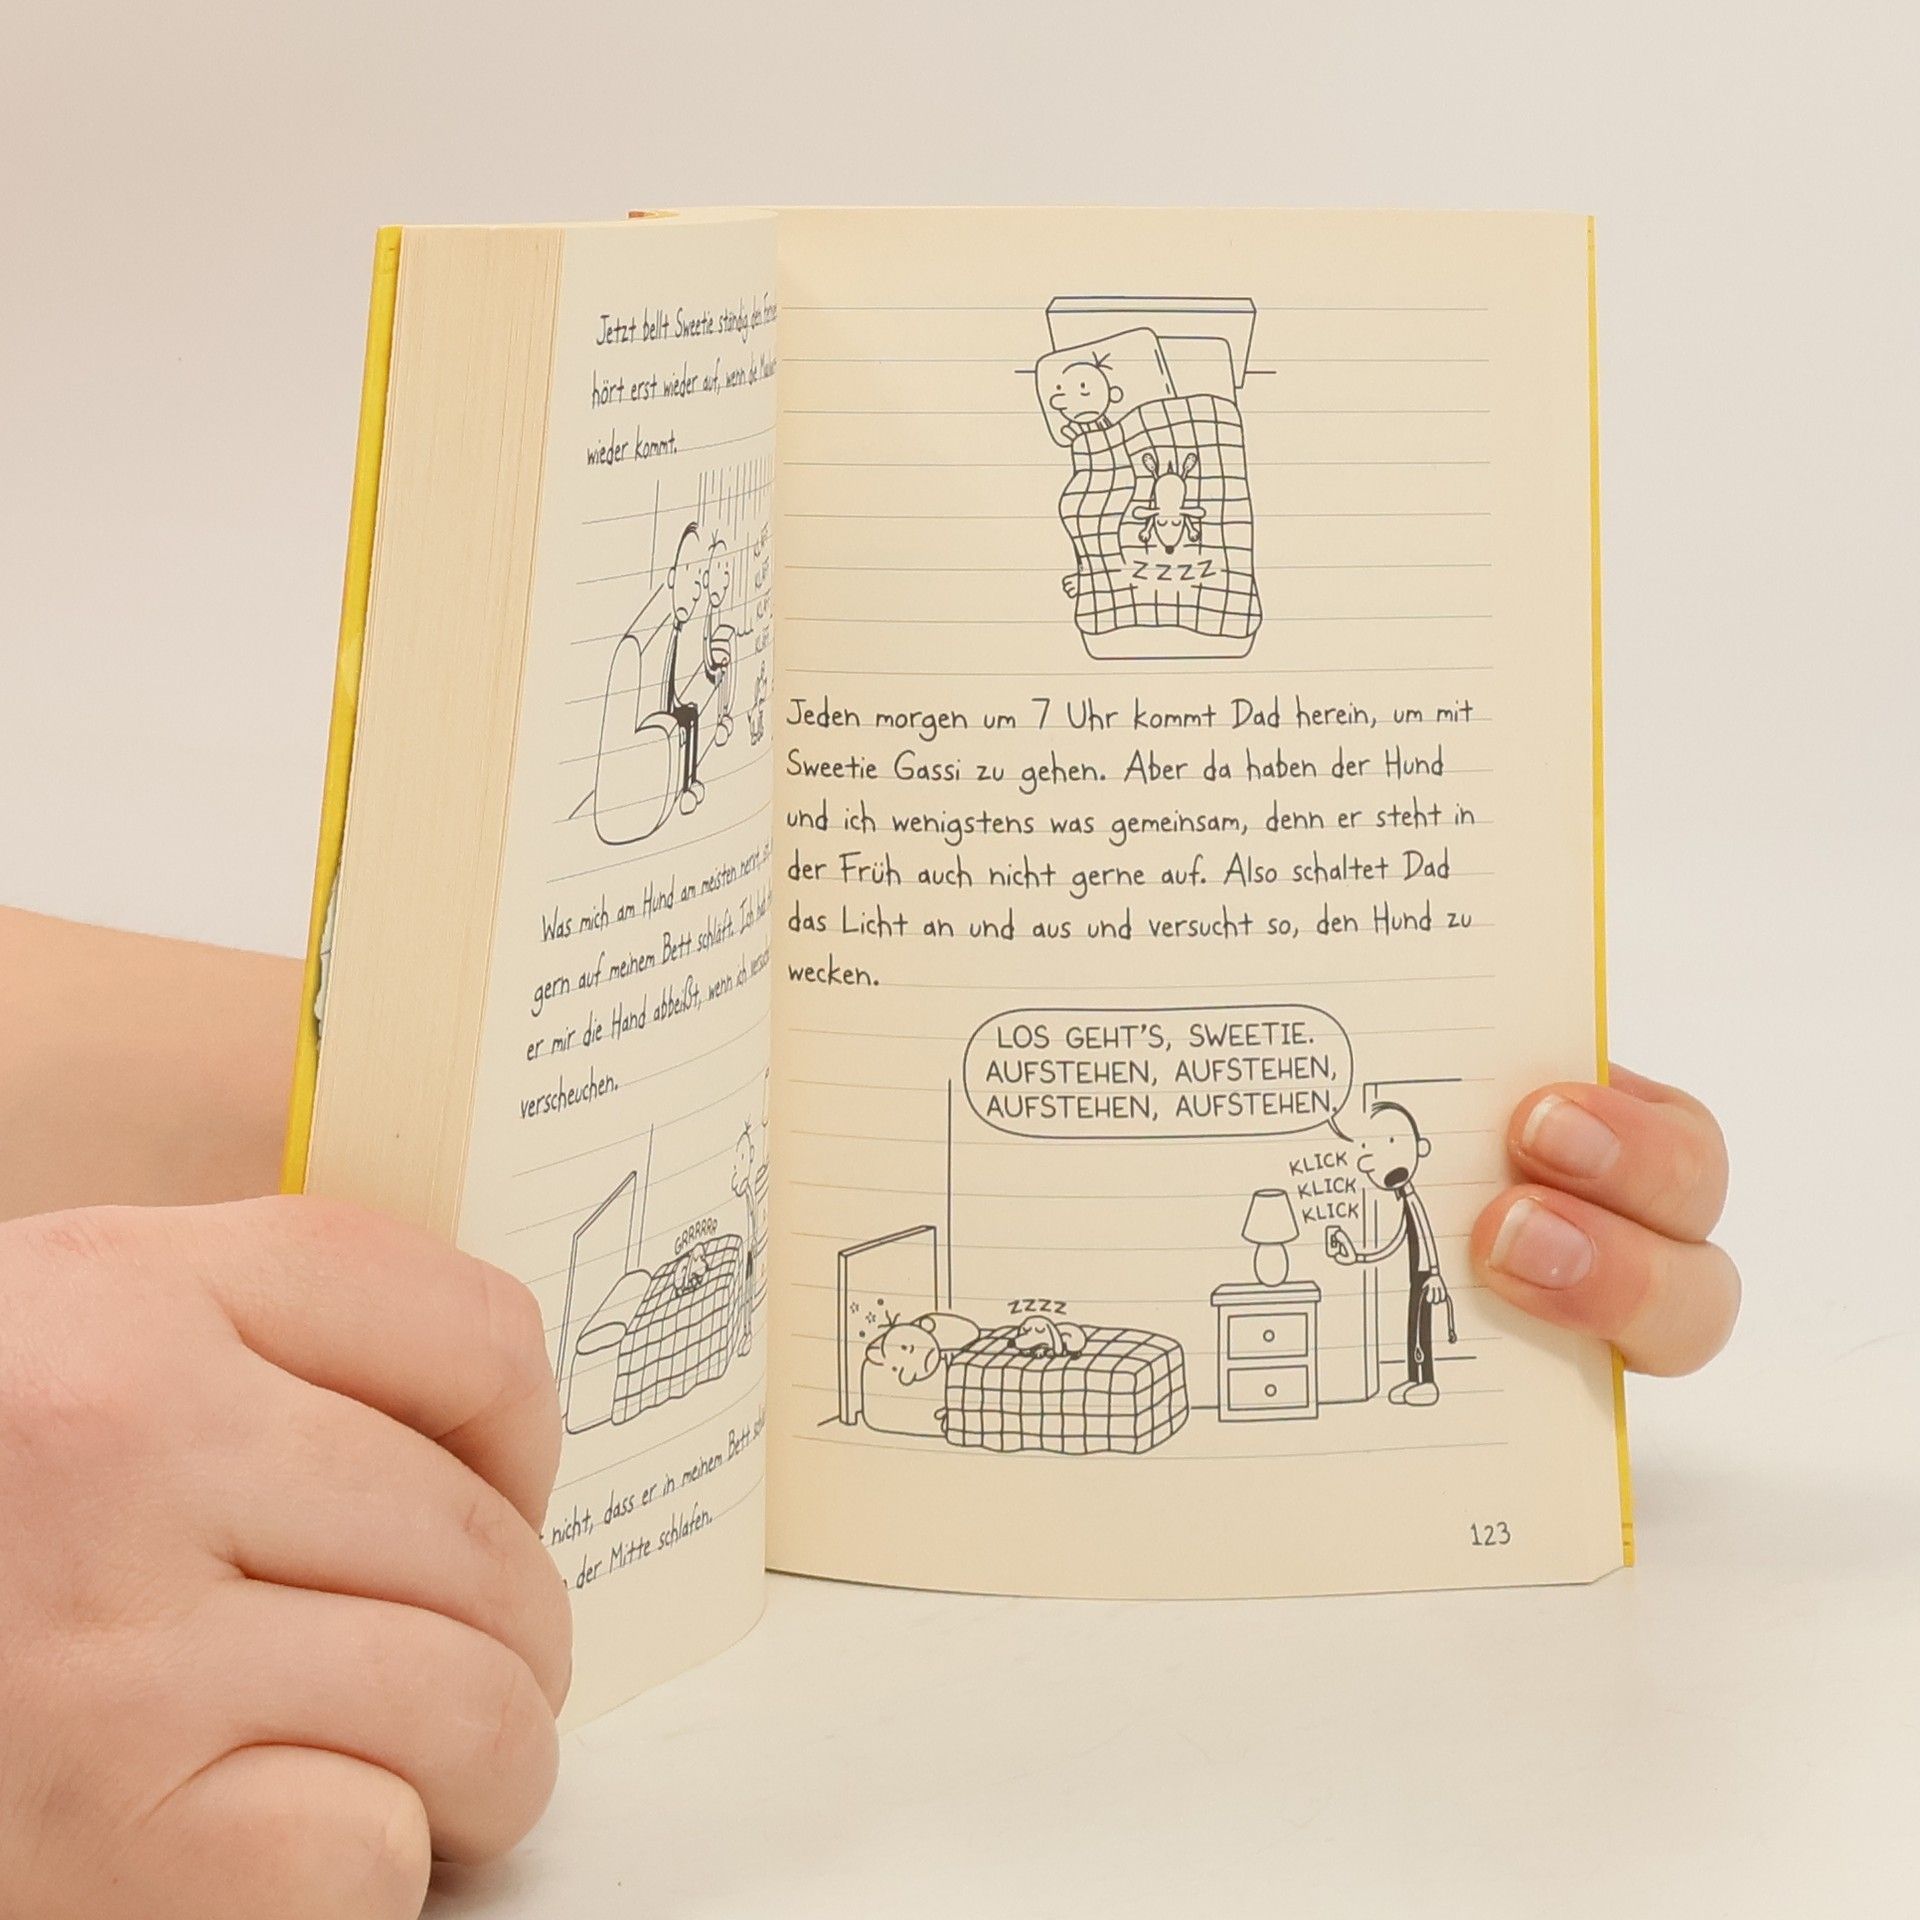 Jetzt bellt Sweetie ständig den
hört erst wieder auf, wenn die
wieder kommt.
Was mich am Hund am meisten nervt,
gern auf meinem Bett schläft. Ich
er mir die Hand abbeißt, wenn ich
verscheuchen.
GRRRRRR
nicht, dass er in meinem Bett
der Mitte schlafen.
ZZZZ
Jeden morgen um 7 Uhr kommt Dad herein, um mit
Sweetie Gassi zu gehen. Aber da haben der Hund
und ich wenigstens was gemeinsam, denn er steht in
der Früh auch nicht gerne auf. Also schaltet Dad
das Licht an und aus und versucht so, den Hund zu
wecken.
LOS GEHT'S, SWEETIE.
AUFSTEHEN, AUFSTEHEN,
AUFSTEHEN, AUFSTEHEN.
KLICK
KLICK
KLICK
ZZZZ
123